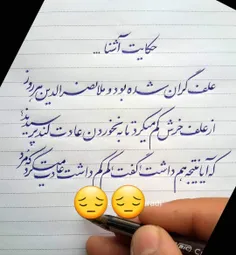 حکایت آشنا ...
علف گران شده بود و ملانصرالدین هر روز
از علف خرش کم میکرد تا به نخوردن عادت کند پرسیدند
که آیا نتیجه هم داشت گفت کم کم داشت عادت میکرد که مرد